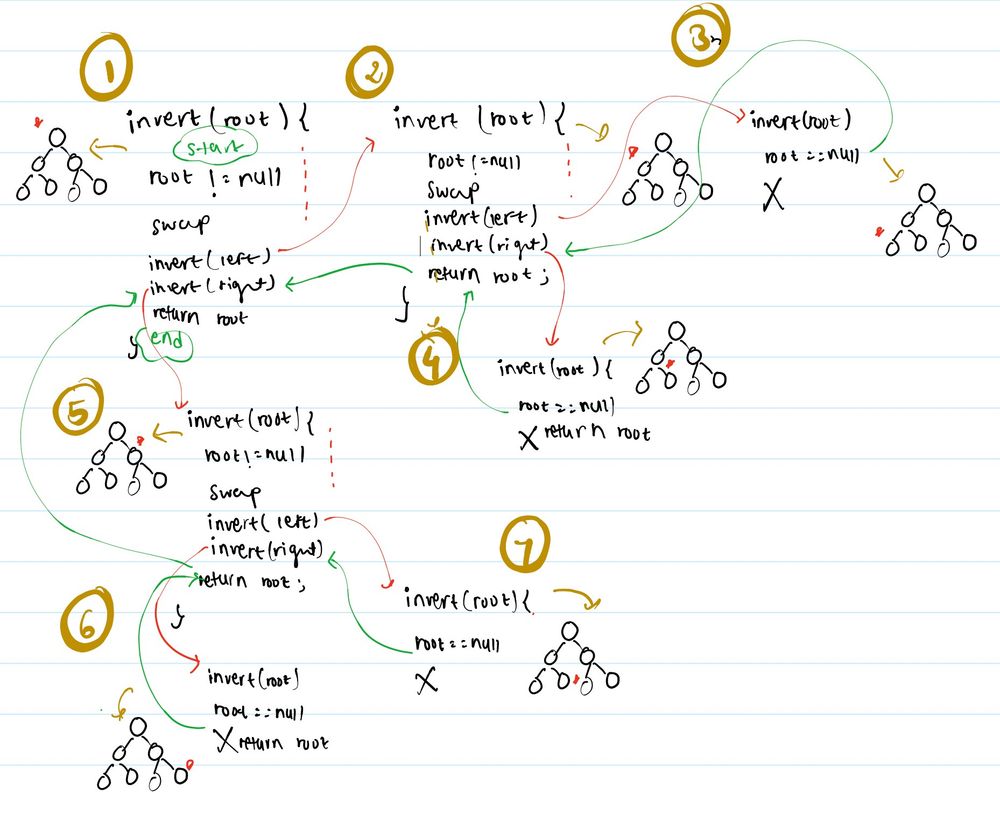 1
invert(root){
start
root != null
swap
invert(left)
invert(right)
return root
}
end
2
invert (root){
root !=null
swap
invert(left)
invert(right)
return root ;
}
3
invert(root)
root ==null
X
4
invert(root){
root==null
X return root
5
invert(root){
root!=null
swap
invert(left)
invert(right)
return root;
}
6
invert(root)
root ==null
X return root
7
invert(root){
root==null
X